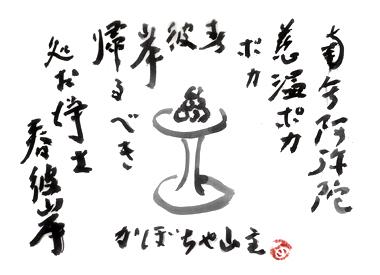 南無阿弥陀
慈温ポカ
ポカ
春彼岸
帰るべき
処お浄土
春彼岸
かぼちゃ山主